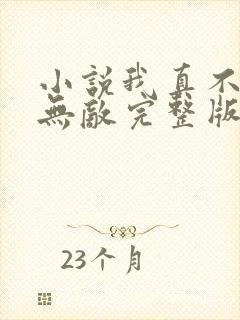 小説我真不
無敵完整版
23个月